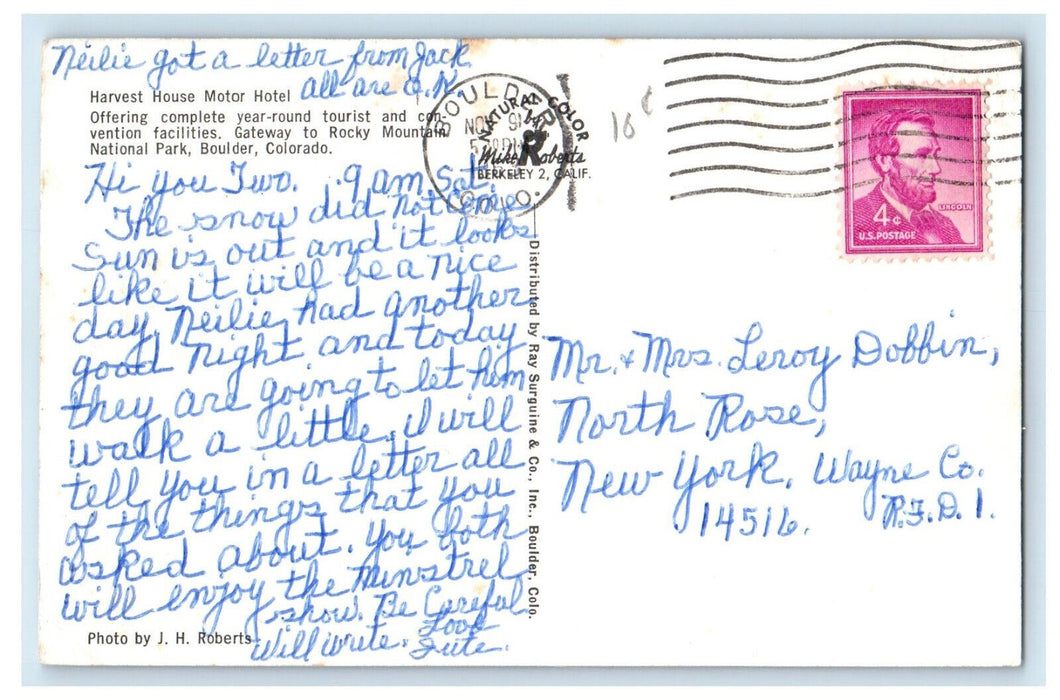 Neilie got a letter from Jack
all are O.K.
Harvest House Motor Hotel
Offering complete year-round tourist and con-
vention facilities. Gateway to Rocky Mountain
National Park, Boulder, Colorado.
Hi you Two. 9 am. Sat.
The snow did not come
Sun is out and it looks
like it will be a nice
day, Neilie had another
good night and today
they are going to let him
walk a little, I will
tell you in a letter all
of the things that you
asked about. You both
will enjoy the Minstrel
show. Be Careful
Will write. Love
Photo by J. H. Roberts
BOULDER
NOV 9
COLO.
NATURAL COLOR
Mike Roberts
BERKELEY 2, CALIF.
Distributed by Ray Surguine & Co., Inc., Boulder, Colo.
10¢
LINCOLN
4¢
U.S. POSTAGE
Mr. & Mrs. Leroy Dobbin,
North Rose,
New York. Wayne Co.
14516. R.F.D. 1.